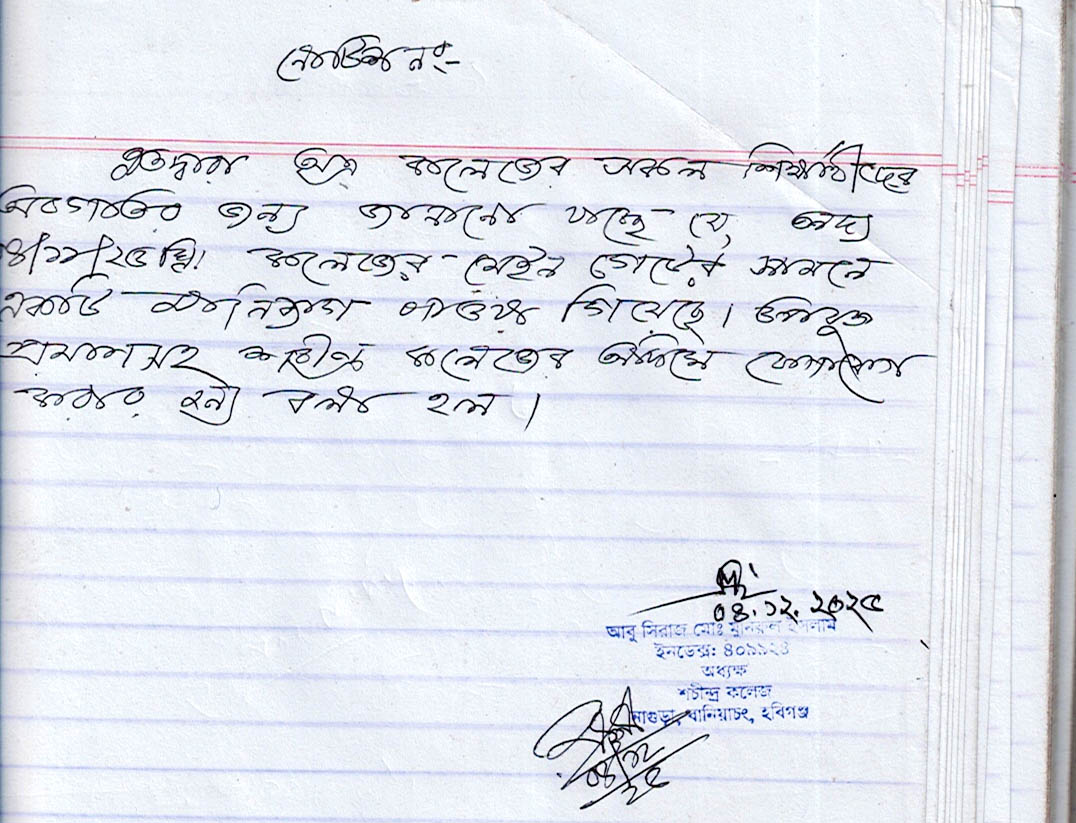 নোটিশ নং:-
এতদ্বারা অত্র কলেজের সকল শিক্ষার্থীদের
অবগতির জন্য জানানো যাচ্ছে যে, অদ্য
কলেজের মেইন গেটের সামনে
একটি মানিব্যাগ পাওয়া গিয়েছে। উপযুক্ত
প্রমাণসহ শচীন্দ্র কলেজের অফিসে যোগাযোগ
করার জন্য বলা হল।
০৪.১২.২০২৫
আবু সিরাজ মোঃ মুনিরুল ইসলাম
ইনডেক্স: ৪০৯৯২৪
অধ্যক্ষ
শচীন্দ্র কলেজ
নাগুড়া, বানিয়াচং, হবিগঞ্জ
০৪/১২
২৫